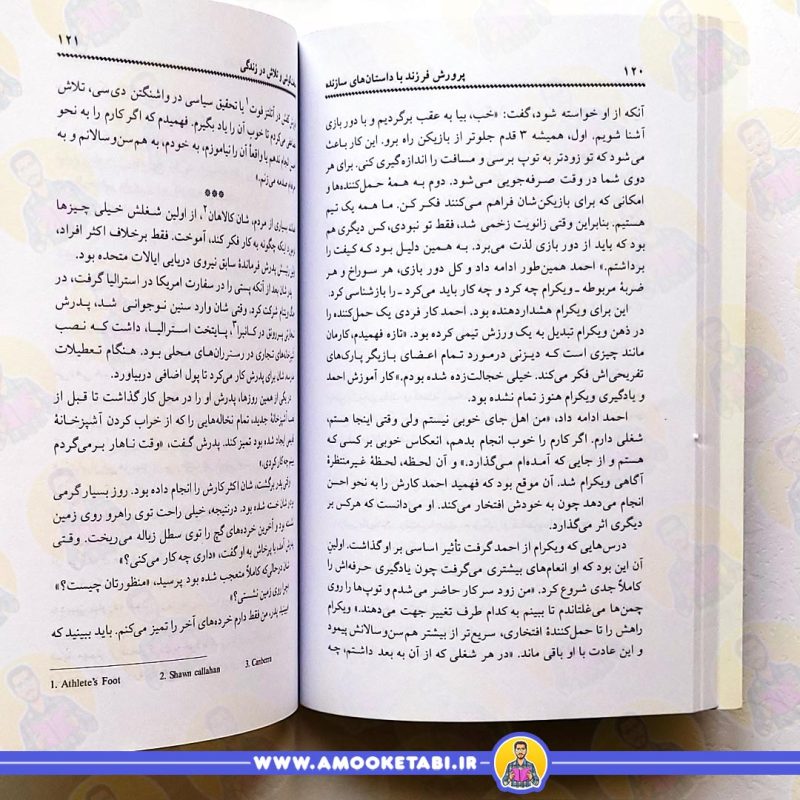 ۱۲۰
پرورش فرزند با داستان‌های سازنده
آنکه از او خواسته شود، گفت: «خب، بیا به عقب برگردیم و با دور بازی
آشنا شویم. اول، همیشه ۳ قدم جلوتر از بازیکن راه برو. این کار باعث
می‌شود که تو زودتر به توپ برسی و مسافت را اندازه‌گیری کنی. برای هر
دوی شما در وقت صرفه‌جویی می‌شود. دوم به همهٔ حمل‌کننده‌ها و
امکانی که برای بازیکن‌شان فراهم می‌کنند فکر کن. ما همه یک تیم
هستیم. بنابراین وقتی زانویت زخمی شد، فقط تو نبودی، کس دیگری هم
بود که باید از دور بازی لذت می‌برد. به همین دلیل بود که کیفت را
برداشتم.» احمد همین‌طور ادامه داد و کل دور بازی، هر سوراخ و هر
ضربهٔ مربوطه ـ ویکرام چه کرد و چه کار باید می‌کرد ـ را بازشناسی کرد.
این برای ویکرام هشداردهنده بود. احمد کار فردی یک حمل‌کننده را
در ذهن ویکرام تبدیل به یک ورزش تیمی کرده بود. «تازه فهمیدم، کارمان
مانند چیزی است که دیزنی درمورد تمام اعضای بازیگر پارک‌های
تفریحی‌اش فکر می‌کند. خیلی خجالت‌زده شده بودم.» کار آموزش احمد
و یادگیری ویکرام هنوز تمام نشده بود.
احمد ادامه داد، «من اهل جای خوبی نیستم ولی وقتی اینجا هستم،
شغلی دارم. اگر کارم را خوب انجام بدهم، انعکاس خوبی بر کسی که
هستم و از جایی که آمده‌ام می‌گذارد.» و آن لحظه، لحظهٔ غیرمنتظرهٔ
آگاهی ویکرام شد. آن موقع بود که فهمید احمد کارش را به نحو احسن
انجام می‌دهد چون به خودش افتخار می‌کند. او می‌دانست که هرکس بر
دیگری اثر می‌گذارد.
درس‌هایی که ویکرام از احمد گرفت تأثیر اساسی بر او گذاشت. اولین
آن این بود که او انعام‌های بیشتری می‌گرفت چون یادگیری حرفه‌اش را
کاملاً جدی شروع کرد. «من زود سر کار حاضر می‌شدم و توپ‌ها را روی
چمن‌ها می‌غلتاندم تا ببینم به کدام طرف تغییر جهت می‌دهند.» ویکرام
راهش را تا حمل‌کنندهٔ افتخاری، سریع‌تر از بیشتر هم‌سن‌وسالانش پیمود
و این عادت با او باقی ماند. «در هر شغلی که از آن به بعد داشتم، چه
و تلاش در زندگی
۱۲۱
در آتلتز فوت۱ یا تحقیق سیاسی در واشنگتن دی‌سی، تلاش
می‌کردم تا خوب آن را یاد بگیرم. فهمیدم که اگر کارم را به نحو
انجام ندهم یا واقعاً آن را نیاموزم، به خودم، به هم‌سن‌وسالانم و به
صدمه می‌زنم.»
***
بسیاری از مردم، شان کالاهان۲، از اولین شغلش خیلی چیزها
اینکه چگونه به کار فکر کند، آموخت. فقط برخلاف اکثر افراد،
رئیسش پدرش فرماندهٔ سابق نیروی دریایی ایالات متحده بود.
شان بعد از آنکه پستی را در سفارت امریکا در استرالیا گرفت، در
ویتنام شرکت کرد. وقتی شان وارد سنین نوجوانی شد، پدرش
پررونق در کانبرا۳، پایتخت استرالیا، داشت که نصب
تجاری در رستوران‌های محلی بود. هنگام تعطیلات
شان برای پدرش کار می‌کرد تا پول اضافی دربیاورد.
در یکی از همین روزها، پدرش او را در محل کار گذاشت تا قبل از
آشپزخانهٔ جدید، تمام نخاله‌هایی را که از خراب کردن آشپزخانهٔ
ایجاد شده بود تمیز کند. پدرش گفت، «وقت ناهار برمی‌گردم
چه کار کردی.»
وقتی پدر برگشت، شان اکثر کارش را انجام داده بود. روز بسیار گرمی
شان خسته شده بود. درنتیجه، خیلی راحت توی راهرو روی زمین
بود و آخرین خرده‌های گچ را توی سطل زباله می‌ریخت. وقتی
آمد، با پرخاش به او گفت، «داری چه کار می‌کنی؟»
شان درحالی‌که کاملاً متعجب شده بود پرسید، «منظورتان چیست؟»
«چرا روی زمین نشستی؟»
«ببینید پدر، من فقط دارم خرده‌های آخر را تمیز می‌کنم. باید ببینید که
1. Athlete's Foot
2. Shawn callahan
3. Canberra
WWW.AMOOKETABI.IR